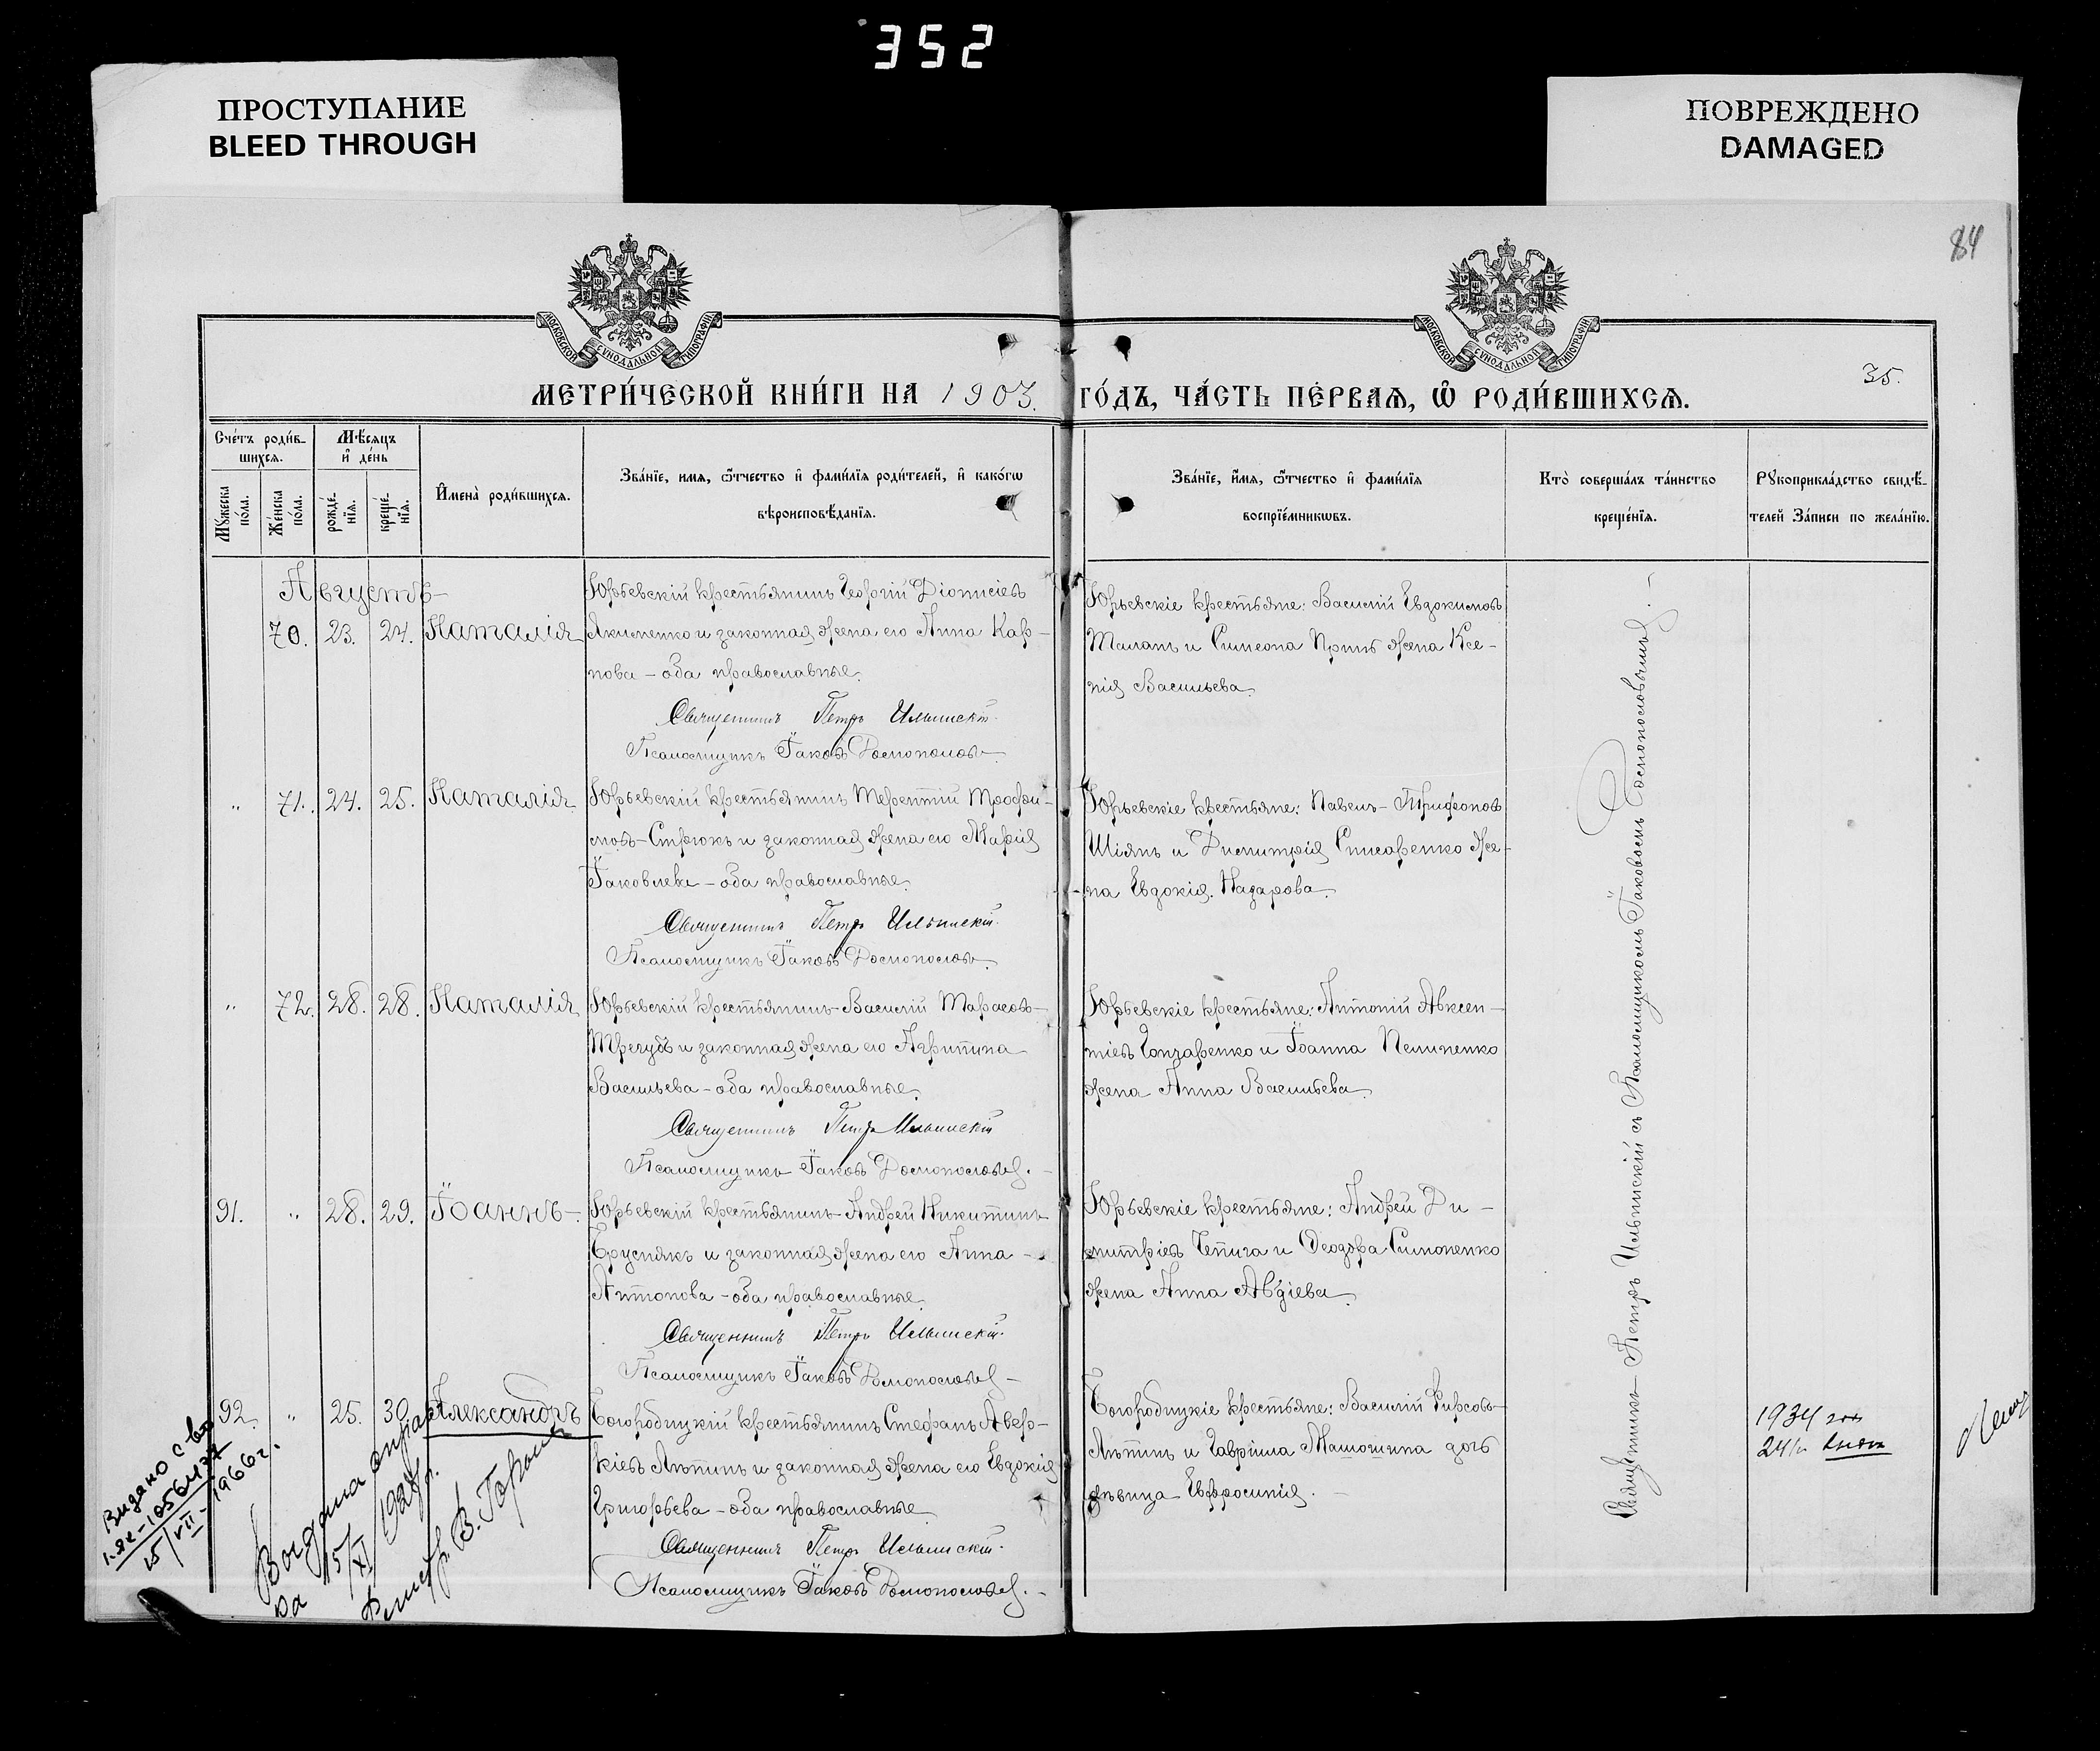 352
ПРОСТУПАНИЕ
BLEED THROUGH
ПОВРЕЖДЕНО
DAMAGED
84
МОСКОВСКОЙ СѴНОДАЛЬНОЙ ТИПОГРАФІИ
МОСКОВСКОЙ СѴНОДАЛЬНОЙ ТИПОГРАФІИ
35.
МЕТРИ́ЧЕСКОЙ КНИ́ГИ НА 1903. ГО́ДЪ, ЧА́СТЬ ПЕ́РВАѦ, Ѽ РОДИ́ВШИХСѦ.
Сче́тъ роди́в-
шихсѧ.
Мꙋ́жеска по́ла.
Же́нска по́ла.
Мѣ́сѧцъ
и҆ де́нь
рожде́-
нїѧ.
креще́-
нїѧ.
И҆мена̀ роди́вшихсѧ.
Зва́нїе, имѧ, ѻ҆́тчество и҆ фами́лїѧ роди́телей, и҆ како́гѡ
вѣроисповѣ́данїѧ.
Зва́нїе, и҆́мѧ, ѻ҆́тчество и҆ фами́лїѧ
воспрїе́мникѡвъ.
Кто̀ соверша́лъ та́инство
креще́нїѧ.
Рꙋкоприкла́дство свидѣ́-
телей За́писи по жела́нїю.
Августъ
70. 23. 24. Наталія
Юрьевскій крестьянинъ Георгій Діонисіевъ
Якименко и законная жена его Анна Кар-
пова – оба православные.
Священникъ Петръ Ильинскій.
Псаломщикъ Іаковъ
Юрьевскіе крестьяне: Василий Евдокимовъ
и Симеона жена Ксе-
нія Васильева.
" 71. 24. 25. Наталія
Юрьевскій крестьянинъ Терентій Трофи-
мовъ – Стрюкъ и законная жена его Марія
Іаковлева – оба православные.
Священникъ Петръ Ильинскій.
Псаломщикъ Іаковъ
Юрьевскіе крестьяне: Павелъ Трифоновъ
Шіянъ и Димитрія Слисаренко же-
на Евдокія Назарова.
" 72. 28. 28. Наталія
Юрьевскій крестьянинъ Василій Тарасовъ
Трегубъ и законная жена его Агрипина
Васильева – оба православные.
Священникъ Петръ Ильинскій
Псаломщикъ Іаковъ
Юрьевскіе крестьяне: Антоній Авксен-
тіевъ Гончаренко и Іоанна Пилипенко
жена Анна Васильева.
91. " 28. 29. Іоаннъ.
Юрьевскій крестьянинъ Андрей Никитинъ
Бруснякъ и законная жена его Анна
Антонова – оба православные.
Священникъ Петръ Ильинскій.
Псаломщикъ Іаковъ
Юрьевскіе крестьяне: Андрей Ди-
митріевъ Чепига и Ѳеодора Симоненко
жена Анна Авдіева.
92. " 25. 30. Александръ
Богородицкій крестьянинъ Стефанъ Авер-
кіевъ Лѣтинъ и законная жена его Евдокія
Григорьева – оба православные
Священникъ Петръ Ильинскій.
Псаломщикъ Іаковъ
Богородицкіе крестьяне: Василій Фирсовъ
Лѣтинъ и Гавріила дочь
дѣвица Евфросинія.
Священникъ Петръ Ильинскій съ Псаломщикомъ Іаковомъ
Видано с-во
15/VII-1966 г.
15/XI 1928 г.
1934